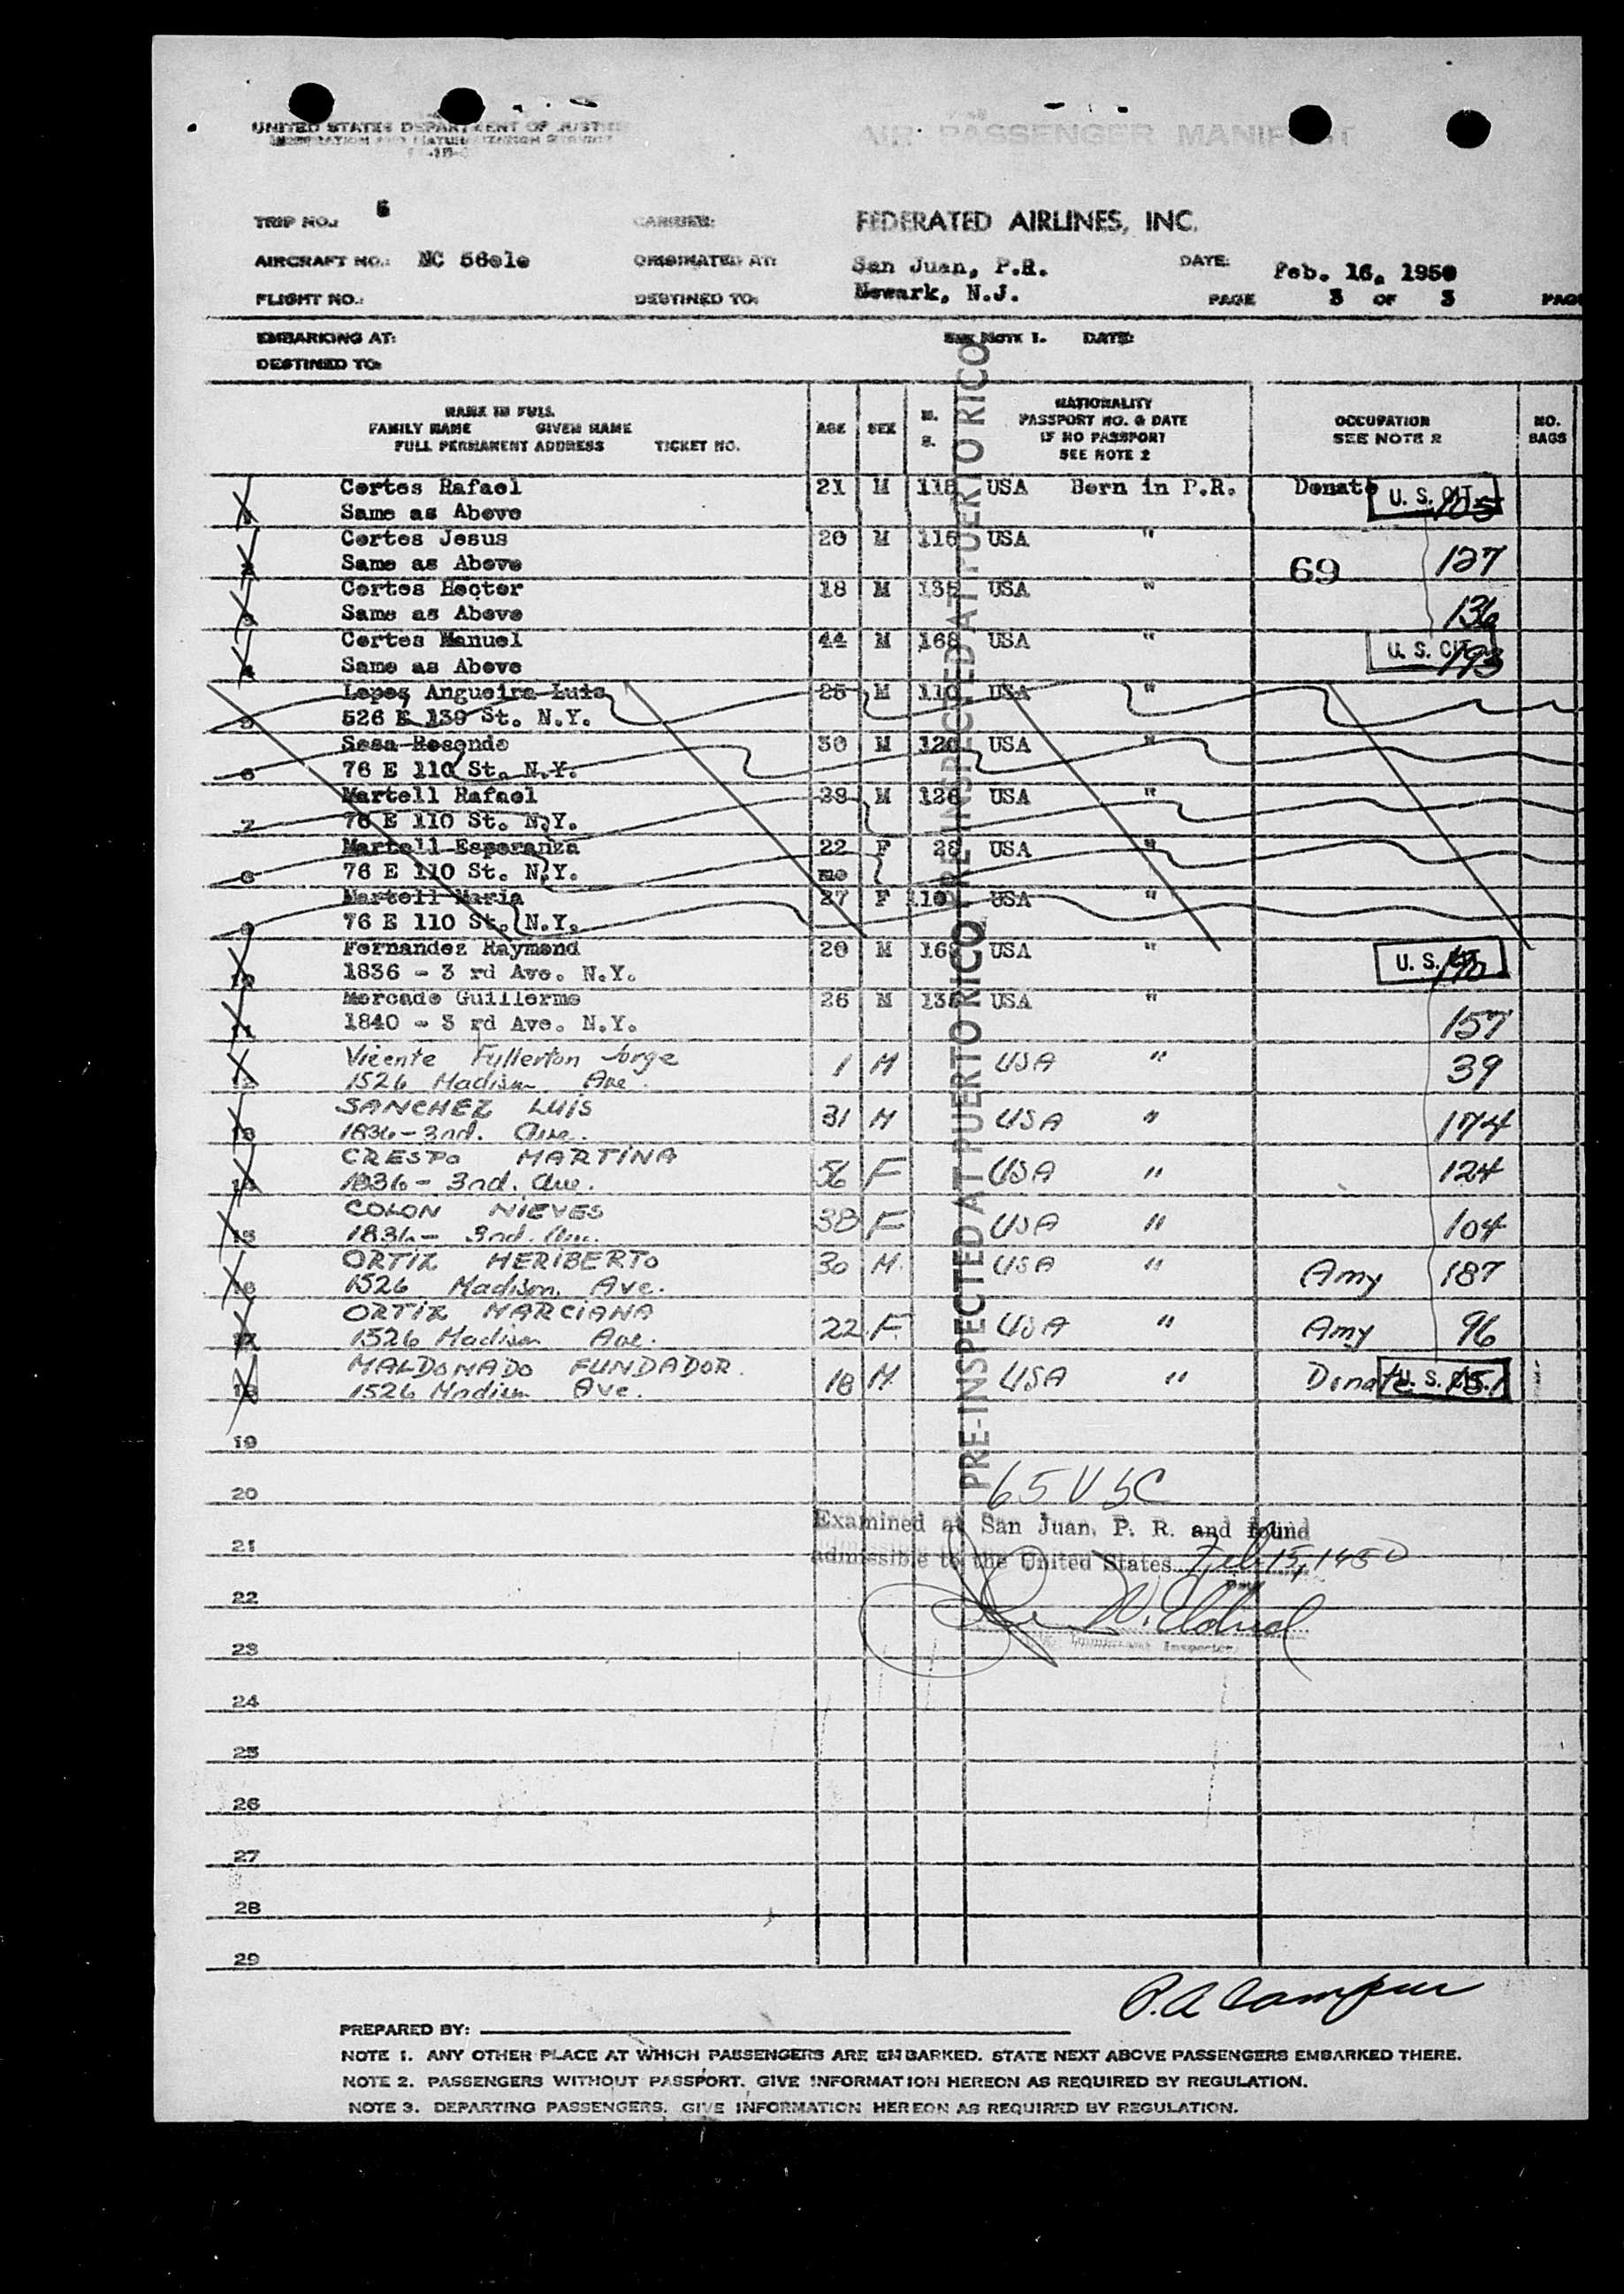 UNITED STATES DEPARTMENT OF JUSTICE
IMMIGRATION AND NATURALIZATION SERVICE
AIR PASSENGER MANIFEST
TRIP NO.: 6 CARRIER: FEDERATED AIRLINES, INC.
AIRCRAFT NO.: NC 56010 ORIGINATED AT: San Juan, P.R. DATE: Feb. 16, 1950
FLIGHT NO.: DESTINED TO: Newark, N.J. PAGE 3 OF 3
EMBARKING AT: SEE NOTE 1. DATE:
DESTINED TO:
NAME IN FULL
FAMILY NAME GIVEN NAME
FULL PERMANENT ADDRESS TICKET NO.
AGE SEX M. S.
NATIONALITY
PASSPORT NO. & DATE
IF NO PASSPORT
SEE NOTE 2
OCCUPATION
SEE NOTE 2
NO. BAGS
PRE-INSPECTED AT PUERTO RICO
PRE-INSPECTED AT PUERTO RICO
1 Cortes Rafael 21 M 118 USA Born in P.R. Donate U. S. CIT. 105
Same as Above
2 Cortes Jesus 20 M 116 USA " 69 127
Same as Above
3 Cortes Hector 18 M 135 USA " 136
Same as Above
4 Cortes Manuel 44 M 168 USA " U. S. CIT. 193
Same as Above
5 Lopez Angueira Luis 25 M 110 USA "
526 E 139 St. N.Y.
6 Sesa Rosendo 30 M 120 USA "
76 E 110 St. N.Y.
7 Martell Rafael 29 M 126 USA "
76 E 110 St. N.Y.
8 Martell Esperanza 22 F 28 USA "
76 E 110 St. N.Y. mo
9 Martell Maria 27 F 110 USA "
76 E 110 St. N.Y.
10 Fernandez Raymond 20 M 168 USA " U. S. CIT.
1836 - 3 rd Ave. N.Y.
11 Mercado Guillermo 26 M 135 USA " 157
1840 - 3 rd Ave. N.Y.
12 Vicente Fullerton Jorge 1 M USA " 39
1526 Madison Ave.
13 SANCHEZ LUIS 31 M USA " 174
1836 - 3nd. Ave.
14 CRESPO MARTINA 56 F USA " 124
1836 - 3nd. Ave.
15 COLON NIEVES 38 F USA " 104
1836 - 3nd. Ave.
16 ORTIZ HERIBERTO 30 M. USA " Amy 187
1526 Madison Ave.
17 ORTIZ MARCIANA 22 F. USA " Amy 96
1526 Madison Ave.
18 MALDONADO FUNDADOR. 18 M. USA " Donate U. S. CIT. 151
1526 Madison Ave.
19
20
65 USC
Examined at San Juan, P. R. and found
21
admissible to the United States Feb 15, 1950
Date
22
Immigrant Inspector
23
24
25
26
27
28
29
PREPARED BY:
NOTE 1. ANY OTHER PLACE AT WHICH PASSENGERS ARE EMBARKED. STATE NEXT ABOVE PASSENGERS EMBARKED THERE.
NOTE 2. PASSENGERS WITHOUT PASSPORT. GIVE INFORMATION HEREON AS REQUIRED BY REGULATION.
NOTE 3. DEPARTING PASSENGERS. GIVE INFORMATION HEREON AS REQUIRED BY REGULATION.